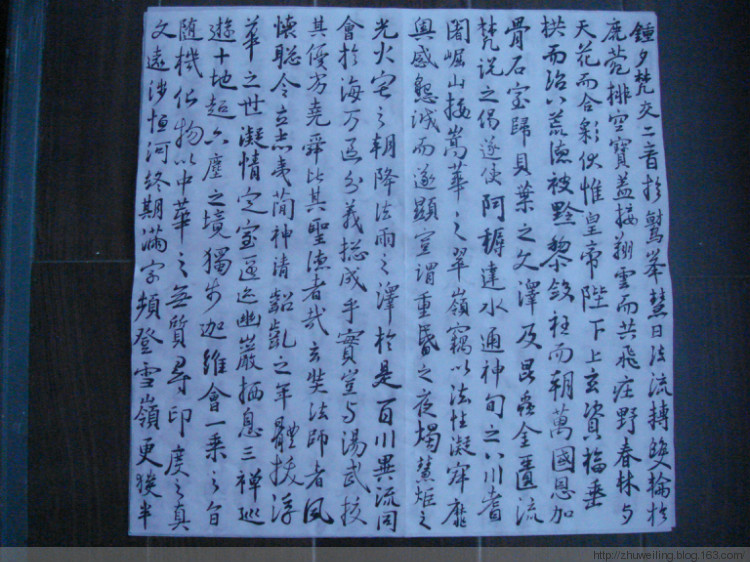 鍾夕梵交二音於鷲峯慧日法流轉雙輪於
鹿菀排空寶蓋接翔雲而共飛庄野春林与
天花而合彩伏惟皇帝陛下上玄資福垂
拱而治八荒德被黔黎斂衽而朝萬國恩加
骨石室歸貝葉之文澤及昆蟲金匱流
梵說之偈遂使阿耨達水通神甸之八川耆
闍崛山接嵩華之翠嶺竊以法性凝寂靡
奧感懇誠而遂顯豈謂重昏之夜燭慧炬之
光火宅之朝降法雨之澤於是百川異流同
會於海万區分義揔成乎實豈与湯武校
其優劣堯舜比其聖德者哉玄奘法師者夙
懷聡令立志夷簡神清齠齔之年體拔浮
華之世凝情定室匿迹幽巖栖息三禪巡
遊十地超六塵之境獨步迦維會一乘之旨
隨機化物以中華之無質尋印度之真
文遠涉恒河終期滿字頻登雪嶺更獲半
http://zhuweiling.blog.163.com/